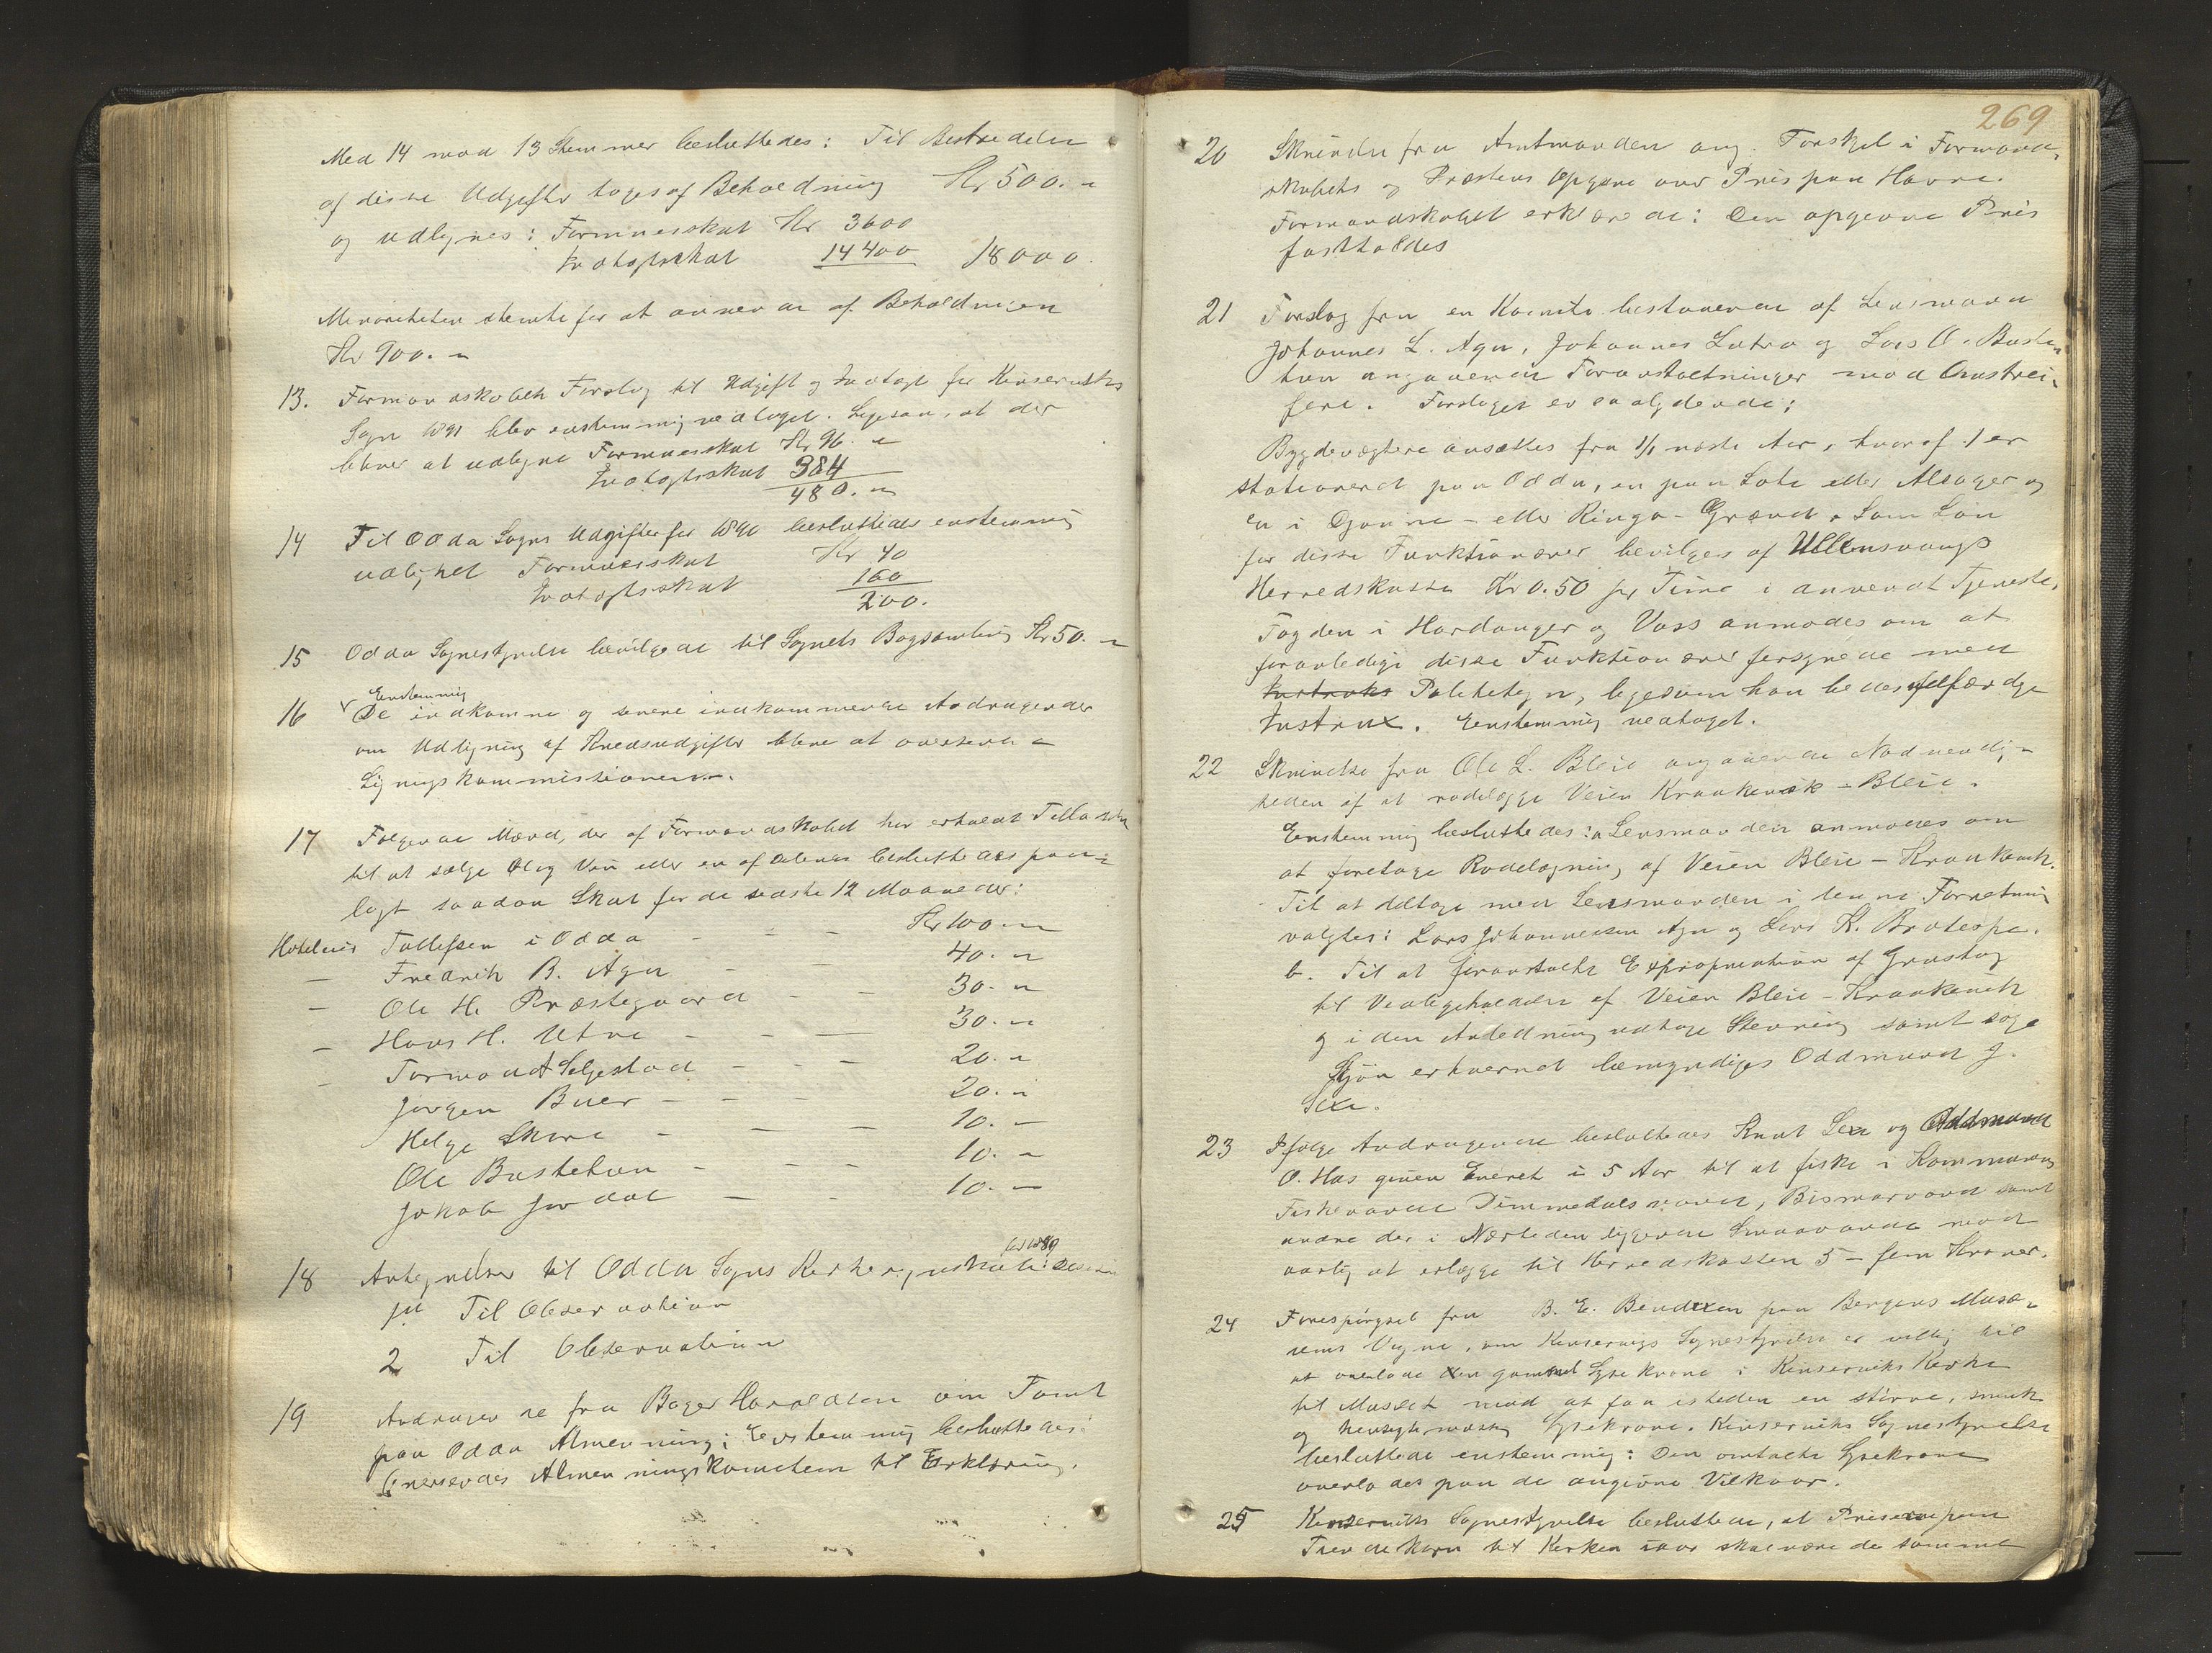 Med 14 mod 13 Stemmer besluttedes: Til Bestridelse
af disse Udgifter tages af Beholdning Kr 500. "
og udlignes: Formuesskat Kr 3600
Indtægtsskat 14400 18000.
Minoriteten stemte for at anvende af Beholdningen
Kr 900. "
13. Formandskabets Forslag til Udgift og Indtægt for Kinserviks
Sogn 1891 blev enstemmig vedtaget. Ligesaa, at der
bliver at udligne Formuesskat Kr 96. "
Indtægtsskat 384
480. "
14 Til Odda Sogns Udgifter for 1890 besluttedes enstemmig
udlignet Formuesskat Kr 40
Indtægtsskat 160
200.
15 Odda Sognestyrelse bevilgede til Sognets Bogsamling Kr 50. "
Enstemmig
16 De indkomne og senere indkommende Andragender
om Udligning af Kredsudgifter blive at oversende
Ligningskommissionen.
17 Følgende Mænd, der af Formandskabet har erholdt Tilladelse
til at sælge Øl og Vin eller en af delene besluttedes paa-
lagt saadan Skat for de sidste 12 Maaneder:
Hoteleier Tollefsen i Odda - - - Kr 100. "
— Fredrik B. Aga - - 40. "
— Ole H. Præstegaard - - 30. "
— Hans H. Utne - - - 30. "
- Tormod A Seljestad - - - 20. "
Jørgen Buer - - - 20. "
Helge Skare - - - 10. —
Ole Bustetun - - - 10. "
Jakob Jordal - - 10. —
for 1889
18 Antegnelser til Odda Sogns Kirkeregnskab:
1ste Til Observation
2 Til Observation
19 Andragende fra Bager Haraldsen om Tomt
paa Odda Almenning; Enstemmig besluttedes:
Oversendes Almenningskomiteen til Erklæring.
269
20 Skrivelse fra Amtmanden ang. Forskjel i Formand-
skabets og Præstens Opgave over Pris paa Havre.
Formandskabet erklærede: Den opgivne Pris
fastholdes
21 Forslag fra en Komite bestaaende af Lensmand
Johannes L. Aga, Johannes Lutro og Lars O. Buste-
tun angaaende Foranstaltninger mod Omstrei-
fere. Forslaget er saalydende:
Bygdevægtere ansættes fra 1/1 næste Aar, hvoraf 1 er
stationeret paa Odda, en paa Lote eller Alsager og
en i Djønne- eller Ringø-Grænd. Som Løn
for disse Funktionærer bevilges af Ullensvangs
Herredskasse Kr 0.50 pr Time i anvendt Tjeneste.
Fogden i Hardanger og Voss anmodes om at
foranledige disse Funktionærer forsynede med
Instruks Polititegn, ligesom han bedes udfærdige
Instrux. Eenstemmig vedtaget.
22 Skrivelse fra Ole L. Bleie angaaende Nødvendig-
heden af at rodelægge Veien Kraakevik – Bleie.
Eenstemmig besluttedes: a Lensmanden anmodes om
at foretage Rodelægning af Veien Bleie – Kraakevik.
Til at deltage med Lensmanden i denne Forretning
valgtes: Lars Johannessen Aga og Lars K. Bratespe.
b. Til at foranstalte Expropriation af Grustag
til Vedligeholdelse af Veien Bleie – Kraakevik
og i den Anledning udtage Stevning samt søge
Skjøn erhvervet bemyndiges Oddmund J.
Sexe.
23 Ifølge Andragende besluttedes Knut Sexe og Oddmund
O. Hus given Eneret i 5 Aar til at fiske i Kommunens
Fiskevande Dimmedalsvand, Bismarvand samt
andre der i Nærheden liggende Smaavande mod
aarlig at erlægge til Herredskassen 5 – fem Kroner.
24 Forespørgsel fra B. E. Bendixen paa Bergens Muse-
ums Vegne, om Kinserviks Sognestyrelse er villig til
at overlade den gammel Lysekrone i Kinserviks Kirke
til Museet mod at faa isteden en større, smuk
og hensigtsmæssig Lysekrone. Kinserviks Sognestyrelse
besluttede enstemmig: Den omtalte Lysekrone
overlades paa de angivne Vilkaar.
25 Kinserviks Sognestyrelse besluttede, at Priserne paa
Tiendekorn til Kirken iaar skal være de samme